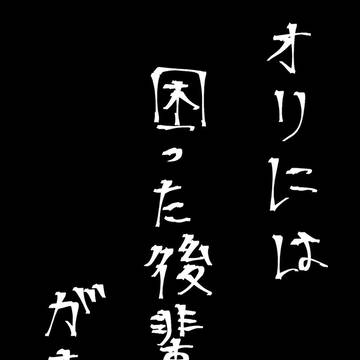 オリには
困った後輩
が